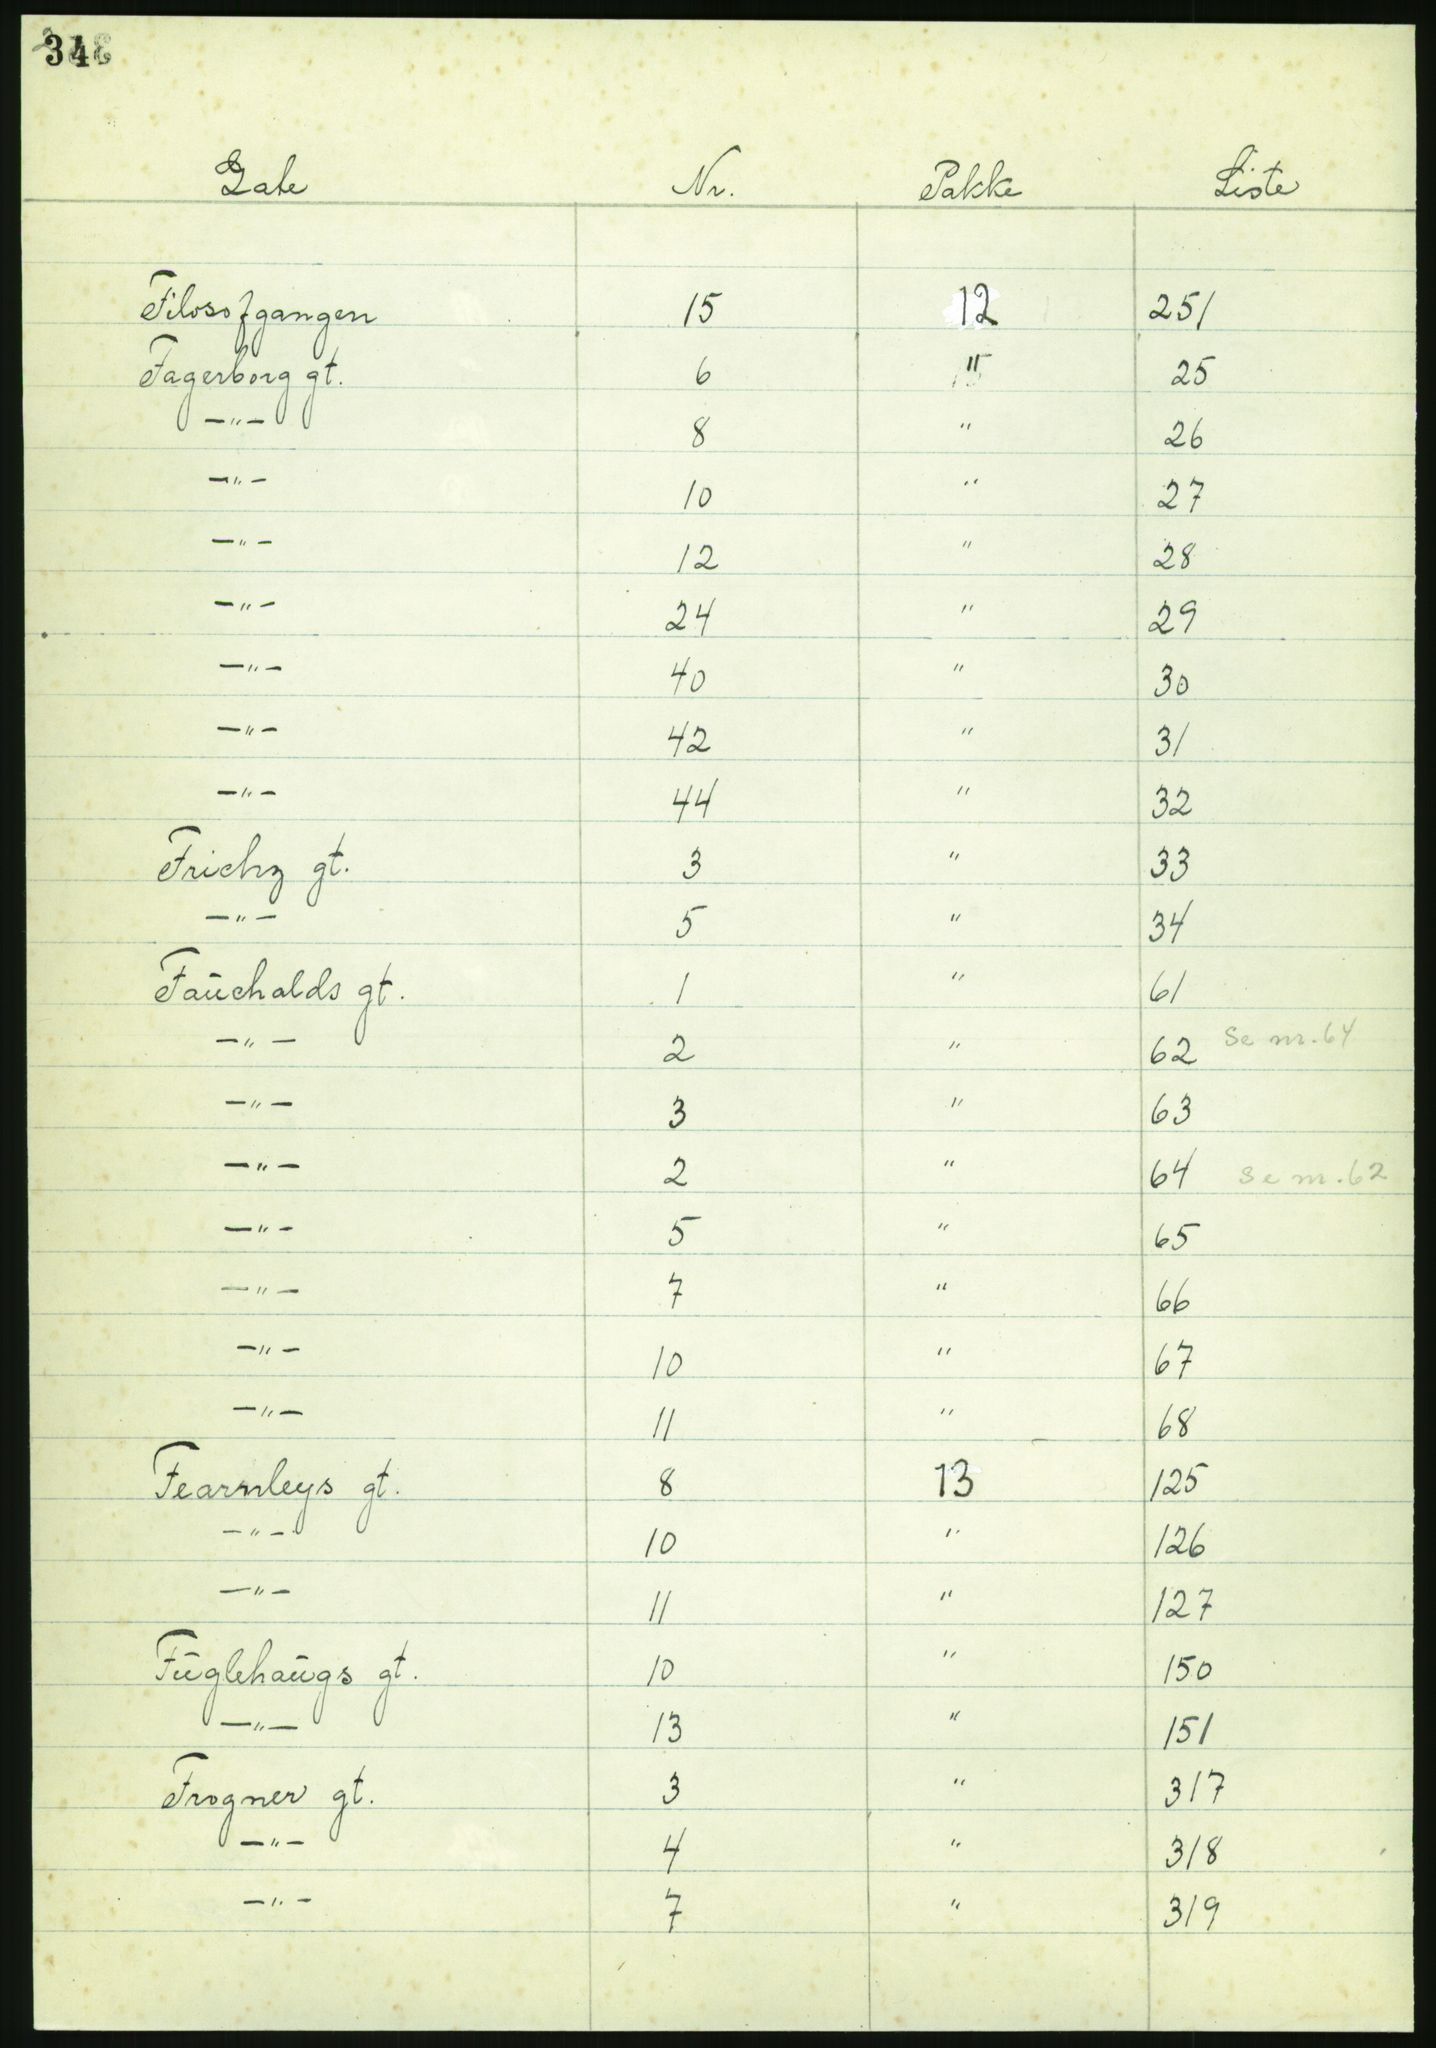 34
Gate Nr. Pakke Liste
Filosofgangen 15 12 251
Fagerborg gt. 6 " 25
—"— 8 " 26
—"— 10 " 27
—"— 12 " 28
—"— 24 " 29
—"— 40 " 30
—"— 42 " 31
—"— 44 " 32
Frichs gt. 3 " 33
—"— 5 " 34
Faūchalds gt. 1 " 61
—"— 2 " 62 Se nr. 64
—"— 3 " 63
—"— 2 " 64 Se nr. 62
—"— 5 " 65
—"— 7 " 66
—"— 10 " 67
—"— 11 " 68
Fearnleys gt. 8 13 125
—"— 10 " 126
—"— 11 " 127
Fūglehaūgs gt. 10 " 150
—"— 13 " 151
Frogner gt. 3 " 317
—"— 4 " 318
—"— 7 " 319